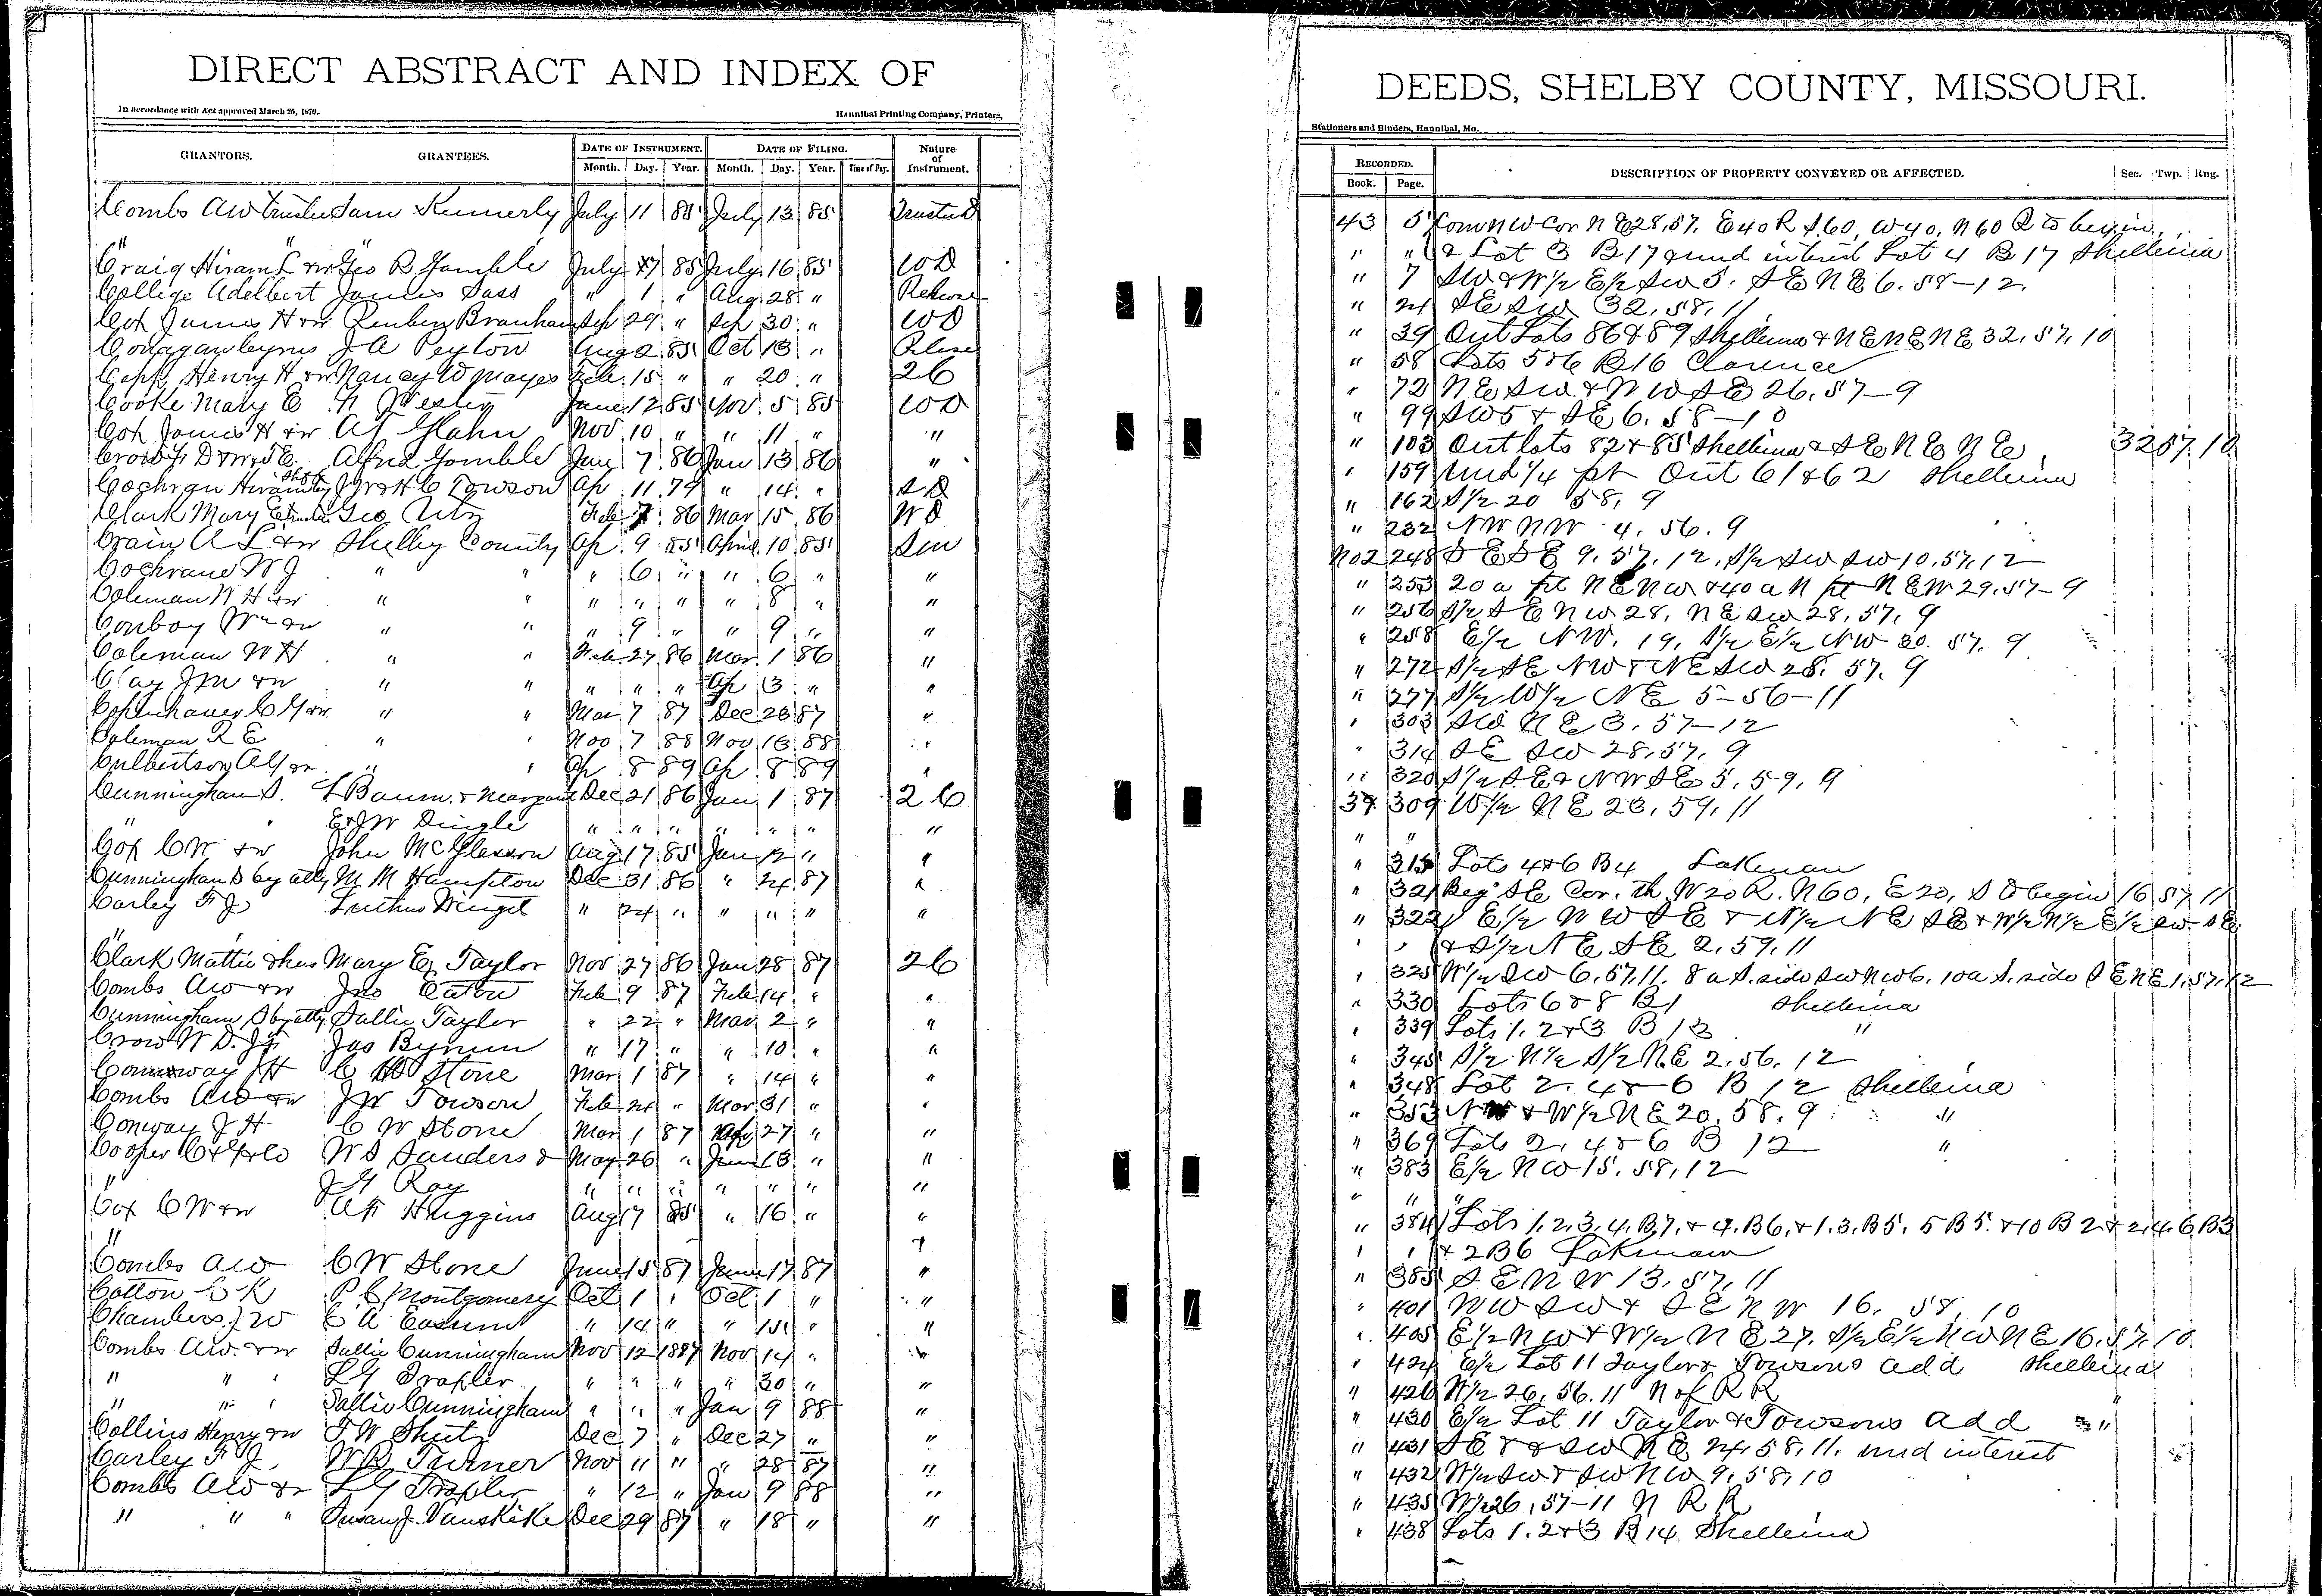 DIRECT ABSTRACT AND INDEX OF
In accordance with Act approved March 25, 1870.
Hannibal Printing Company, Printers,
GRANTORS. GRANTEES. DATE OF INSTRUMENT. DATE OF FILING. Nature of Instrument.
Month. Day. Year. Month. Day. Year. Time of Day.
Combs AW trustee Sam Kennerly July 11 85 July 13 85 Trustee D
" " "
Craig Hiram L &w Geo R Gamble July 85 July 16 85 WD
College Adelbert James Sass " 1 " Aug 28 " Release
Cox James H &w Reuben Branham Sep 29 " Sep 30 " WD
J A Peyton Aug 2 85 Oct 13 "
Capp Henry H &w Nancy W Mayes Feb 15 " " 20 " 26
Cooke Mary E June 12 85 Nov 5 85 WD
Cox James H &w AJ Glahn Nov 10 " " 11 " "
Alfred Gamble Jan 7 86 Jan 13 86 "
Cochran Hiram by Shff J W & H C Towson Ap 11 79 " 14 " SD
Clark Mary E Geo Utz Feb 7 86 Mar 15 86 WD
Crain A L &w Shelby County Ap 9 85 April 10 85
Cochrane W J " " " 6 " " 6 " "
Coleman W H &w " " " " " " 8 " "
Conboy Wm &w " " " 9 " " 9 " "
Coleman W H " " Feb 27 86 Mar 1 86 "
Clay J M &w " " " " " Ap 3 " "
Copenhaver C Y &w " " Mar 7 87 Dec 28 87 "
Coleman R E " " Nov 7 88 Nov 13 88 "
Culbertson A Y &w " " Ap 8 89 Ap 8 89 "
Cunningham S. L Baum & Margaret Dec 21 86 Jan 1 87 26
" " E & JW Dingle " " " " " " "
Cox C W &w John McGlasson Aug 17 85 Jan 12 " "
Cunningham S by atty M M Hampton Dec 31 86 " 24 87 "
Carley F J Luthus Wingel " 24 " " " " "
"
Clark Mattie & hus Mary E Taylor Nov 27 86 Jan 28 87 26
Combs AW &w Jno Eaton Feb 9 87 Feb 14 " "
Cunningham S by atty Sallie Taylor " 22 " Mar 2 " "
Crow W D. Jas Bynum " 17 " " 10 " "
Conway J H C W Stone Mar 1 87 " 14 " "
Combs AW &w J W Towson Feb 24 " Mar 31 " "
Conway J H C W Stone Mar 1 87 Ap 27 " "
Cooper C & Y & Co W S Sanders & May 26 " June 13 " "
" J G Ray " " " " " " "
Cox C W &w A F Huggins Aug 17 85 " 16 " "
"
Combs AW C W Stone June 15 87 June 17 87 "
Cotton C K P C Montgomery Oct 1 " Oct 1 " "
Chambers J W C A Easum " 14 " " 15 " "
Combs AW. &w Sallie Cunningham Nov 12 1887 Nov 14 " "
" " " L G Drapler " " " " 30 " "
" " " Sallie Cunningham " " " Jan 9 88 "
Collins Henry &w T W Sheetz Dec 7 " Dec 27 " "
Carley F J. W R Turner Nov 11 " " 28 87 "
Combs AW &w L G Drapler " 12 " Jan 9 88 "
" " " Susan J Vanskike Dec 29 87 " 18 " "
DEEDS, SHELBY COUNTY, MISSOURI.
Stationers and Binders, Hannibal, Mo.
RECORDED. DESCRIPTION OF PROPERTY CONVEYED OR AFFECTED. Sec. Twp. Rng.
Book. Page.
43 5 Com NW Cor NE 28, 57, E 40 R S 60, W 40, N 60 R to begin
" " & Lot 3 B 17 & und interest Lot 4 B 17 Shelbina
" 7 SW & W½ E½ SW 5. SE NE 6. 58-12.
" 24 SE SW 32, 58, 11
" 39 Out Lots 86 & 89 Shelbina & NE NE NE 32, 57, 10
" 58 Lots 5 & 6 B 16 Clarence
" 72 NE SW & NW SE 26, 57-9
" 99 SW 5 & SE 6. 58-10
" 103 Out lots 82 & 85 Shelbina & SE NE NE 32 57. 10
" 159 Und ¼ pt Out 61 & 62 Shelbina
" 162 S½ 20 58, 9
" 232 NW NW 4. 56. 9
No 2 248 SE SE 9. 57. 12. S½ SW SW 10, 57, 12
" 253 20 a pt NE NW & 40 a N pt NE W 29. 57-9
" 256 S½ SE NW 28, NE SW 28, 57, 9
" 258 E½ NW. 19, S½ E½ NW 30. 57, 9
" 272 S½ SE NW & NE SW 28, 57, 9
" 277 S½ W½ NE 5-56-11
" 303 SW NE 3. 57-12
" 314 SE SW 28, 57, 9
" 320 S½ SE & NW SE 5, 59, 9
37 309 W½ NE 23, 59, 11
" "
" 315 Lots 4 & 6 B 4 Lakenan
" 321 Beg SE Cor. th W 20 R. N 60, E 20, S to begin 16 57. 11
" 322 E½ NW SE & N½ NE SE & W½ N½ E½ SW SE
" " & S½ NE SE 2, 59, 11
" 325 W½ SW 6, 57, 11. 8 a S. side SW NW 6. 10 a S. side SE NE 1, 57, 12
" 330 Lots 6 & 8 B 1 Shelbina
" 339 Lots 1. 2 & 3 B 13 "
" 345 S½ N½ S½ NE 2. 56. 12
" 348 Lot 2. 4 & 6 B 12 Shelbina
" 353 & W½ NE 20, 58, 9 "
" 369 Lots 2, 4 & 6 B 12 "
" 383 E½ NW 15, 58, 12
" " "
" 384 Lots 1, 2, 3, 4, B 7, & 4. B 6, & 1. 3, B 5, 5 B 5. & 10 B 2 & 2, 4 6 B 3
" " & 2 B 6 Lakenan
" 385 SE NW 13, 57, 11
" 401 NW SW & SE NW 16, 58, 10
" 405 E½ NW & W½ NE 27. S½ E½ NW NE 16, 57, 10.
" 424 E½ Lot 11 Taylor & Towsons add Shelbina
" 426 W½ 26, 56. 11 N of RR "
" 430 E½ Lot 11 Taylor & Towsons add "
" 431 SE & SW NE 24, 58, 11, und interest
" 432 W½ SW & SW NW 9, 58, 10
" 435 W½ 26, 57-11 N RR
" 438 Lots 1. 2 & 3 B 14 Shelbina